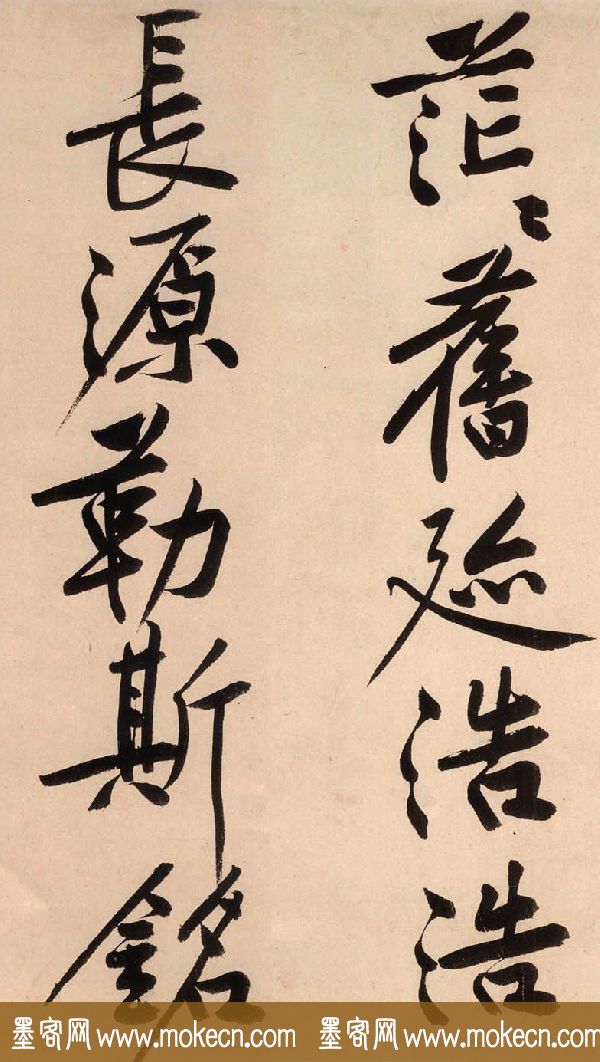 茫〻舊迹浩浩
長源勒斯銘
墨客网 www.mokecn.com 墨客网 www.mokecn.com